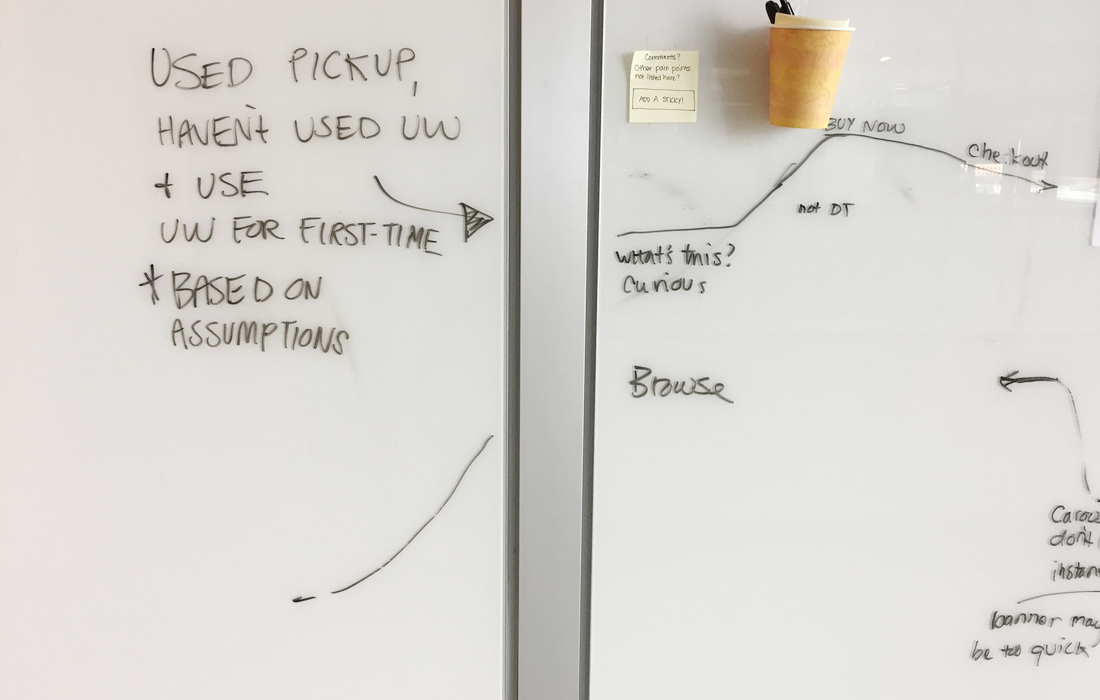 USED PICKUP,
HAVEN't USED UW
+ USE
UW FOR FIRST-TIME
* BASED ON
ASSUMPTIONS
Comments?
Other pain points
not listed here?
ADD A STICKY!
BUY NOW
Checkout
not DT
what's this?
Curious
Browse
don't
banner may
be too quick